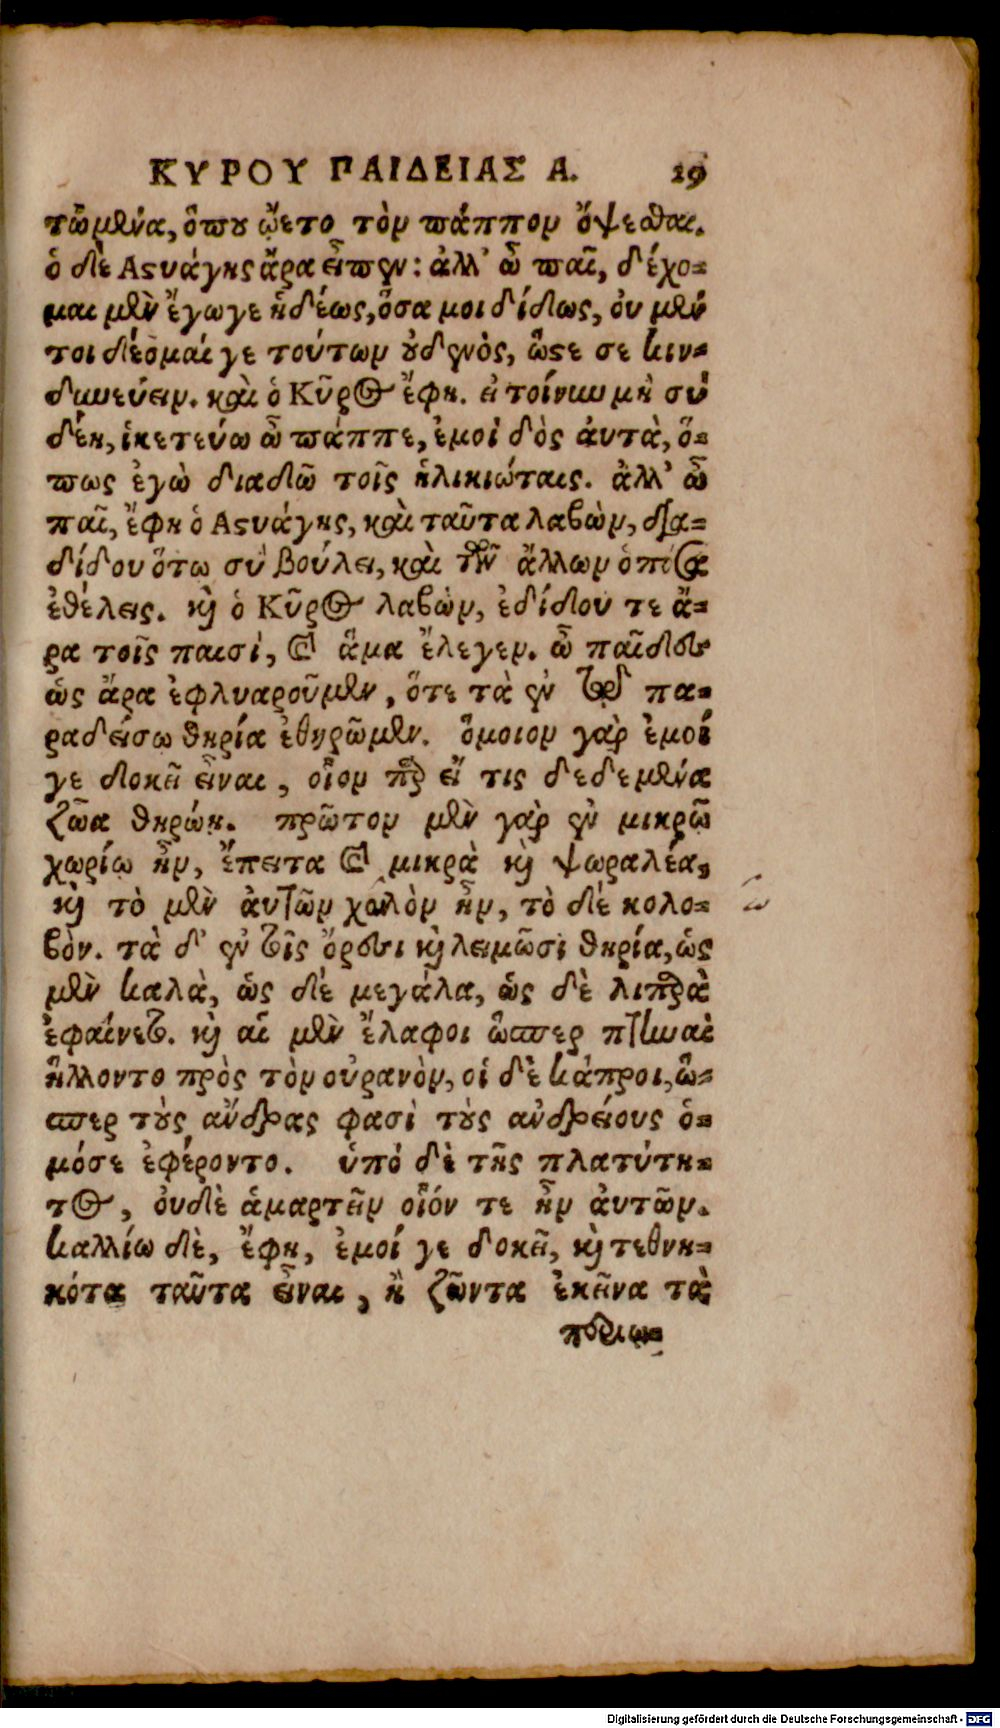 ΚΥΡΟΥ ΠΑΙΔΕΙΑΣ Α. 19
τωμένα, ὅπου ᾤετο τὸν πάππον ὄψεσθαι.
ὁ δὲ Αστυάγης ἄρα εἶπεν: ἀλλ' ὦ παῖ, δέχο-
μαι μὲν ἔγωγε ἡδέως, ὅσα μοι δίδως, οὐ μέν
τοι δέομαί γε τούτων οὐδενὸς, ὥστε σε κιν-
δυνεύειν. καὶ ὁ Κῦρος ἔφη. εἰ τοίνυν μὴ σύ
δέῃ, ἱκετεύω ὦ πάππε, ἐμοὶ δὸς αὐτὰ, ὅ-
πως ἐγὼ διαδῶ τοῖς ἡλικιώταις. ἀλλ' ὦ
παῖ, ἔφη ὁ Αστυάγης, καὶ ταῦτα λαβὼν, δια-
δίδου ὅτῳ σὺ βούλει, καὶ τῶν ἄλλων ὁπόσα
ἐθέλεις. καὶ ὁ Κῦρος λαβὼν, ἐδίδου τε ἄ-
ρα τοῖς παισί, καὶ ἅμα ἔλεγεν. ὦ παῖδες
ὡς ἄρα ἐφλυαροῦμεν, ὅτε τὰ ἐν τῷ πα-
ραδείσῳ θηρία ἐθηρῶμεν. ὅμοιον γὰρ ἐμοί
γε δοκεῖ εἶναι, οἷον περ εἴ τις δεδεμένα
ζῶα θηρῴη. πρῶτον μὲν γὰρ ἐν μικρῷ
χωρίῳ ἦν, ἔπειτα καὶ μικρὰ καὶ ψωραλέα,
καὶ τὸ μὲν αὐτῶν χωλὸν ἦν, τὸ δὲ κολο-
βὸν. τὰ δ' ἐν τοῖς ὄρεσι καὶ λειμῶσι θηρία, ὡς
μὲν καλὰ, ὡς δὲ μεγάλα, ὡς δὲ λιπαρὰ
ἐφαίνετο. καὶ αἱ μὲν ἔλαφοι ὥσπερ πτηναὶ
ἥλλοντο πρὸς τὸν οὐρανὸν, οἱ δὲ κάπροι, ὥ-
σπερ τοὺς ἄνδρας φασὶ τοὺς ἀνδρείους ὁ-
μόσε ἐφέροντο. ὑπὸ δὲ τῆς πλατύτη-
τος, οὐδὲ ἁμαρτεῖν οἷόν τε ἦν αὐτῶν.
καλλίω δὲ, ἔφη, ἐμοί γε δοκεῖ, καὶ τεθνη-
κότα ταῦτα εἶναι, ἢ ζῶντα ἐκεῖνα τὰ
Digitalisierung gefördert durch die Deutsche Forschungsgemeinschaft - DFG